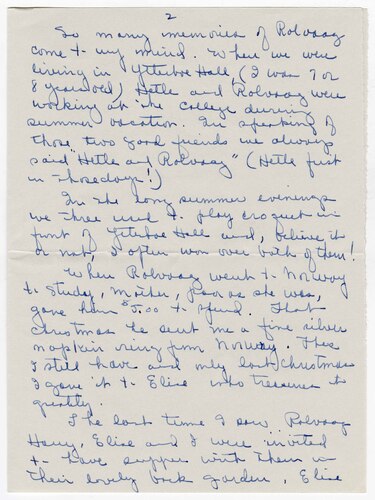 2
So many memories of Rolvaag
come to my mind. When we were
living in Ytterboe Hall, (I was 7 or
8 years old) Hetle and Rolvaag were
working at the college during
summer vacation. In speaking of
those two good friends we always
said "Hetle and Rolvaag" (Hetle first
in those days!)
In the long summer evenings
we three used to play croquet in
front of Ytterboe Hall and, believe it
or not, I often won over both of them!
When Rolvaag went to Norway
to study, Mother, poor as she was,
gave him $5.00 to spend. That
Christmas he sent me a fine silver
napkin ring from Norway. This
I still have and only last Christmas
I gave it to Elise who treasures it
greatly.
The last time I saw Rolvaag
Harry, Elise and I were invited
to have supper with them in
their lovely back garden, Elise